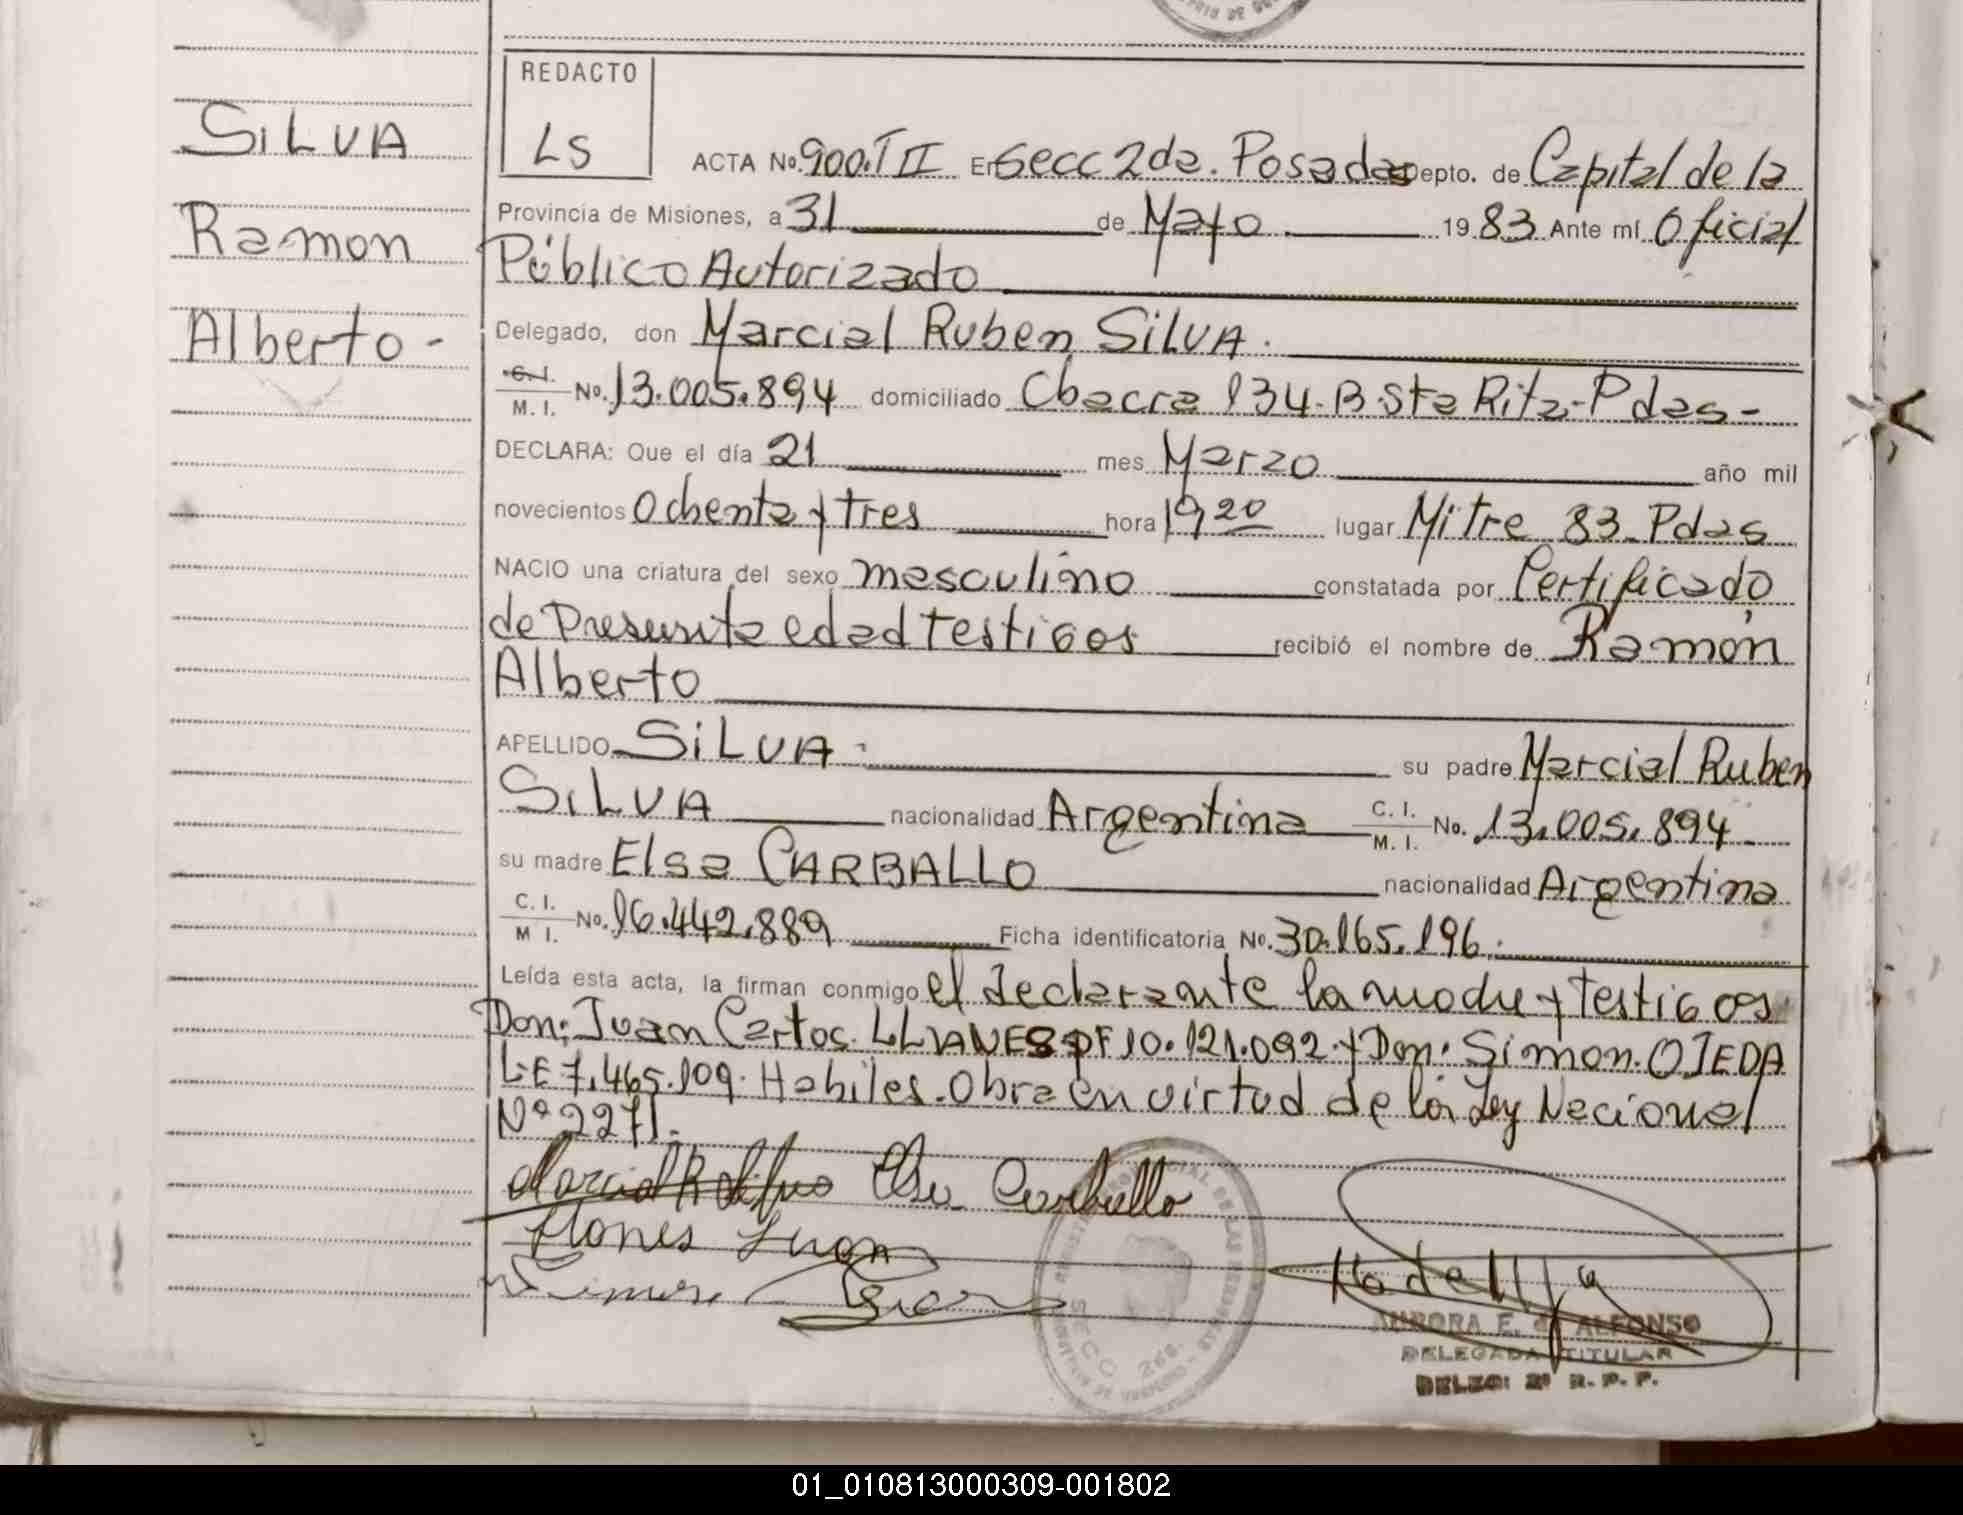 SILVA
Ramon
Alberto -
REDACTO
LS
ACTA No. 900.T II En Secc 2da. Posadas Depto. de Capital de la
Provincia de Misiones, a 31 de Mayo 1983 Ante mí Oficial
Público Autorizado
Delegado, don Marcial Ruben SILVA.
C. I. / M. I. No. 13.005.894 domiciliado Chacra 134. B. Sta Rita - Pdas -
DECLARA: Que el día 21 mes Marzo año mil
novecientos Ochenta y tres hora 19 20 lugar Mitre 83 - Pdas
NACIO una criatura del sexo masculino constatada por Certificado
de Presunta edad testigos recibió el nombre de Ramón
Alberto
APELLIDO SILVA. su padre Marcial Ruben
SILVA nacionalidad Argentina C. I. / M. I. No. 13.005.894
su madre Elsa CARBALLO nacionalidad Argentina
C. I. / M I. No. 16.442.889 Ficha identificatoria No. 30.165.196.
Leída esta acta, la firman conmigo el declarante la madre y testigos
Don: Juan Carlos LLANES PF 10.121.092. y Don: Simon OJEDA
L.E 7.465.109. Habiles. Obra en virtud de la Ley Nacional
Nº 2271.
Marcial R Silva Elsa Carballo
Llanes Juan
Simon
SECC 2da.
AURORA E. de ALFONSO
DELEGADA TITULAR
DELEG: 2ª R. P. P.
01_010813000309-001802